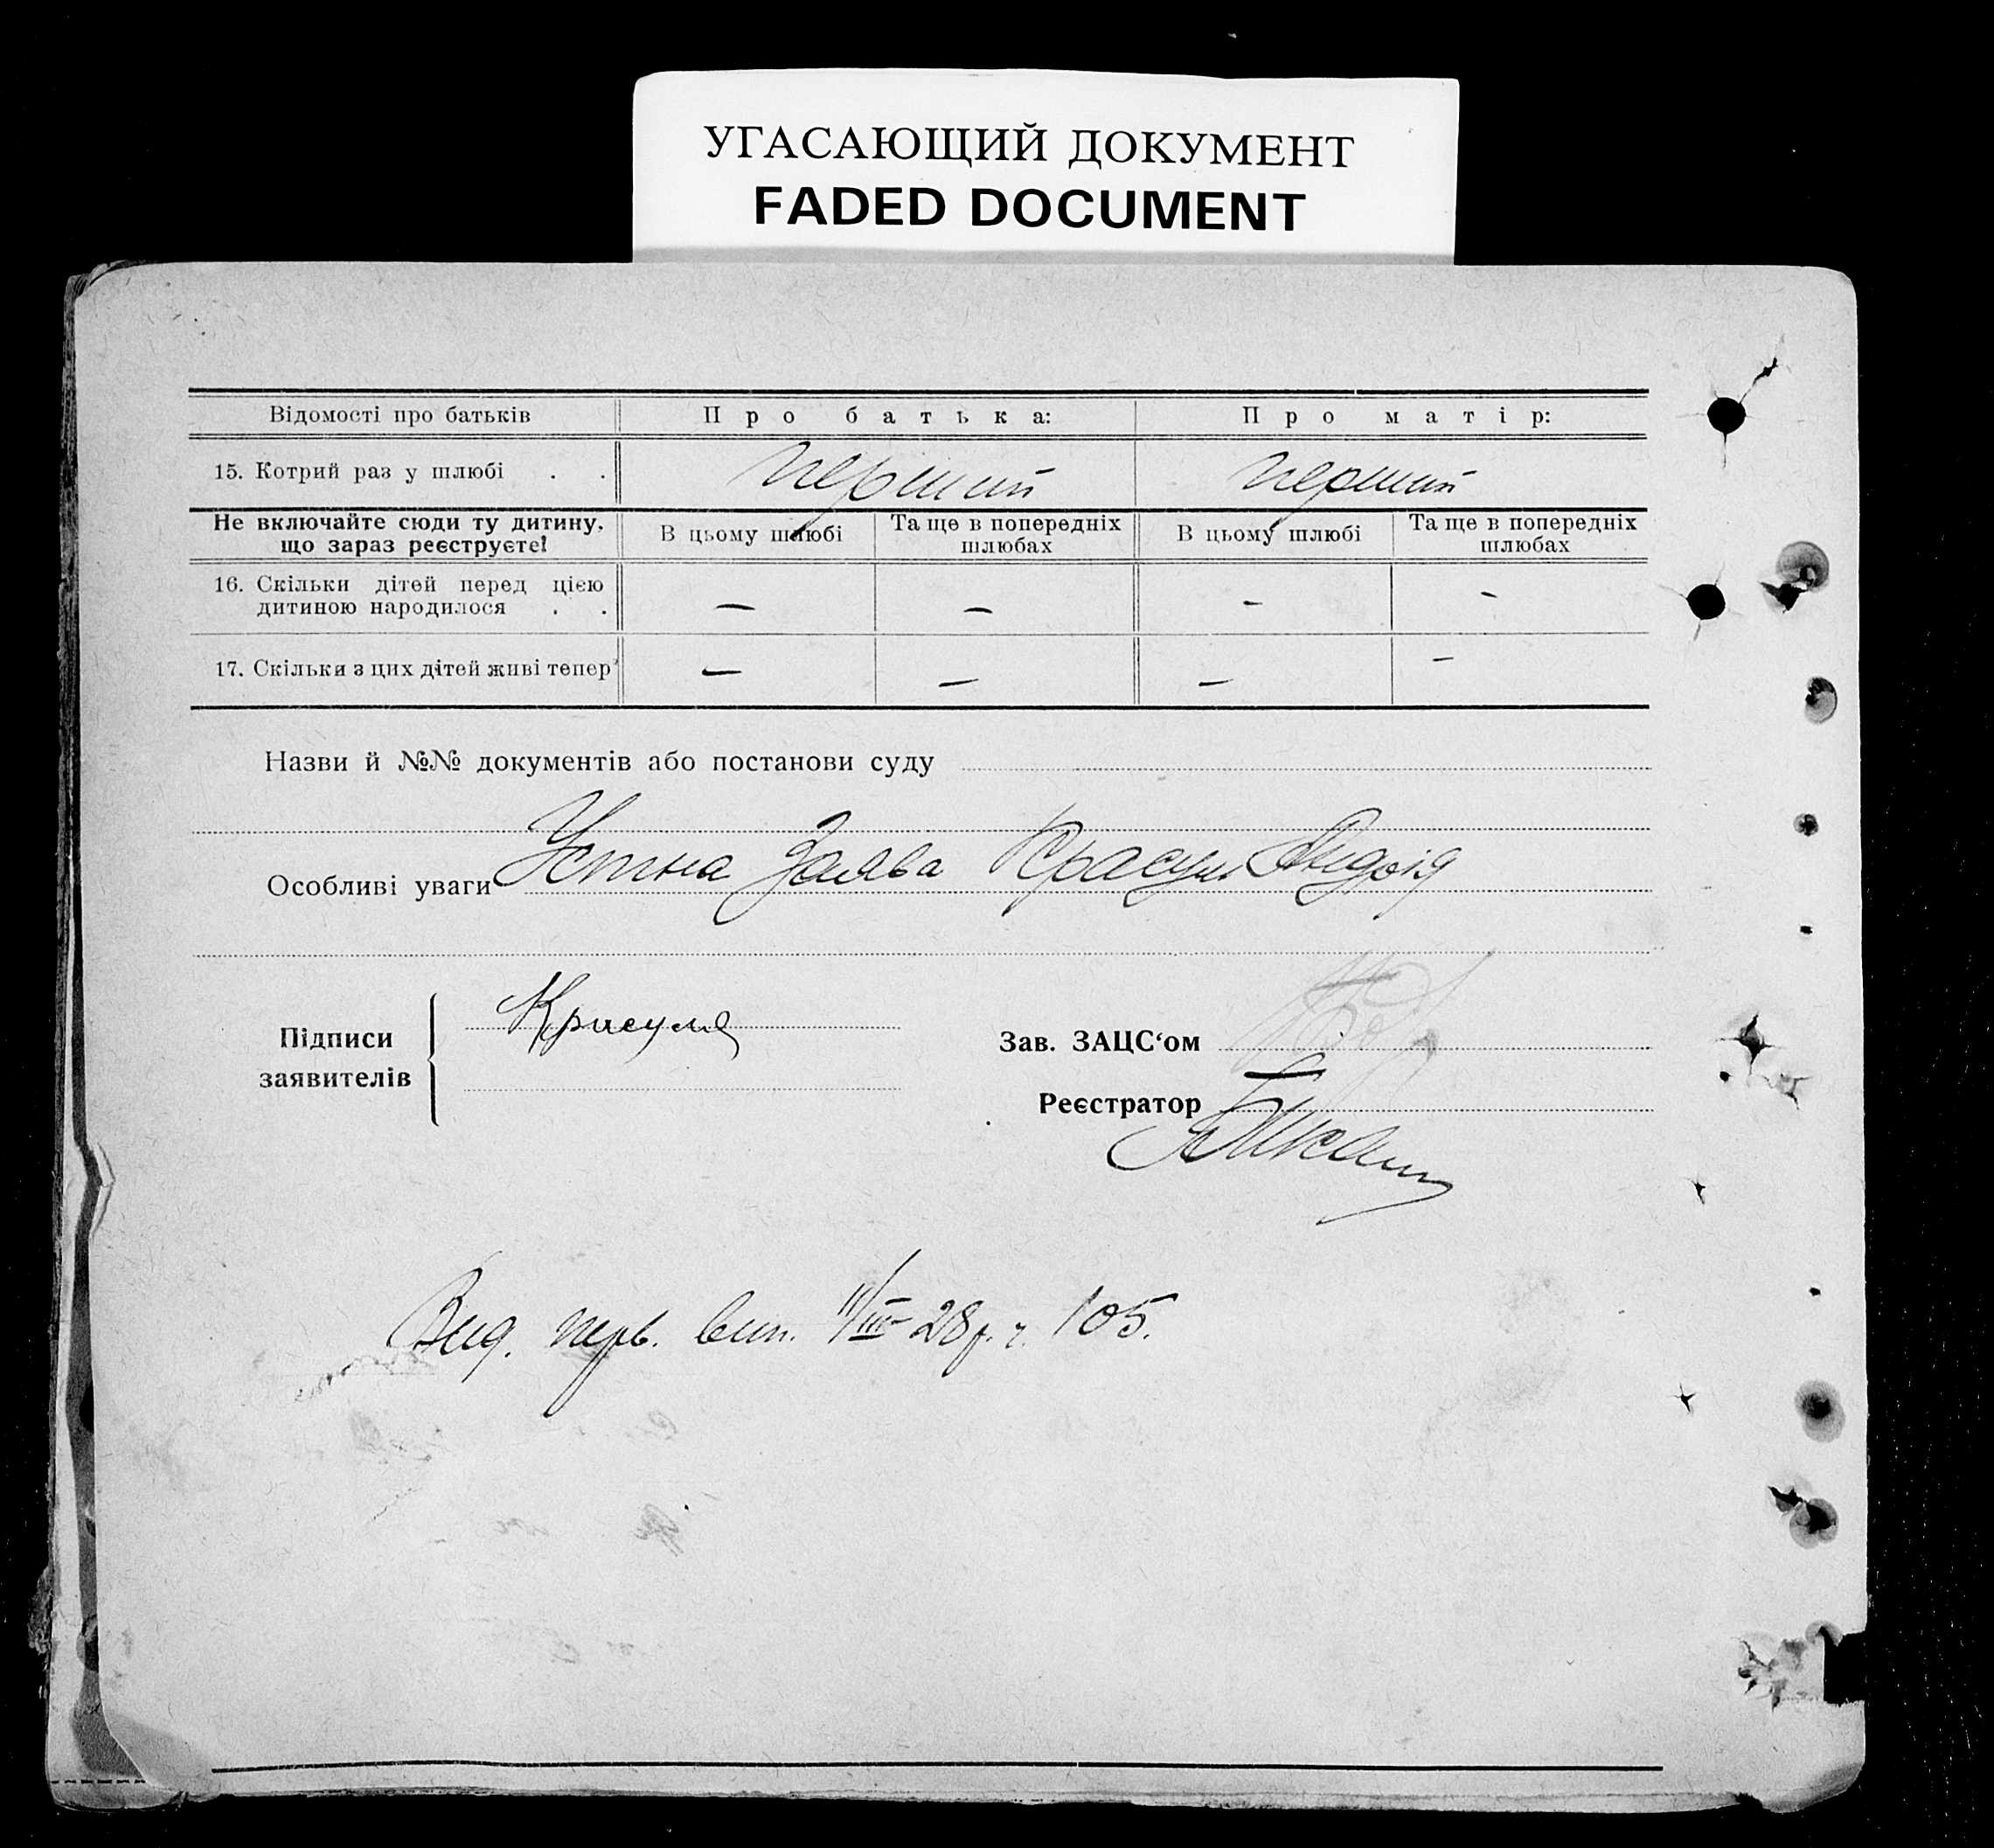 УГАСАЮЩИЙ ДОКУМЕНТ
FADED DOCUMENT
Відомості про батьків Про батька: Про матір:
15. Котрий раз у шлюбі . . перший перший
Не включайте сюди ту дитину, що зараз реєструєте! В цьому шлюбі Та ще в попередніх шлюбах В цьому шлюбі Та ще в попередніх шлюбах
16. Скільки дітей перед цією
дитиною народилося . . — — - -
17. Скільки з цих дітей живі тепер — — — —
Назви й №№ документів або постанови суду
Особливі уваги Устна Заява
Підписи
заявителів
Зав. ЗАЦС‘ом
Реєстратор
Вид. перв. вип. 11/III-28р. ч. 105.